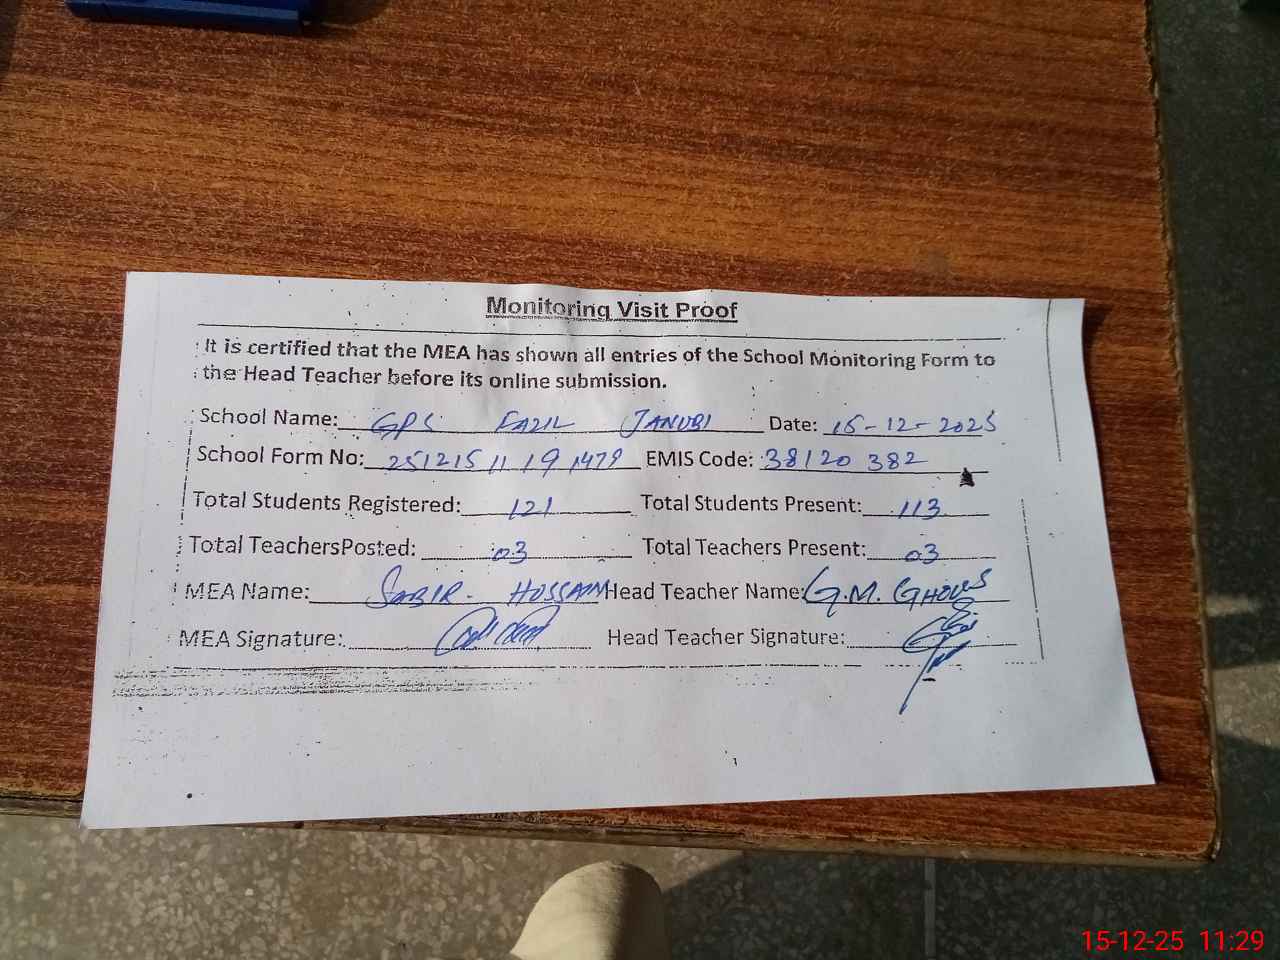 Monitoring Visit Proof
It is certified that the MEA has shown all entries of the School Monitoring Form to
the Head Teacher before its online submission.
School Name: GPS FAZIL JANUBI Date: 15-12-2025
School Form No: 251215 11 19 1479 EMIS Code: 38120 382
Total Students Registered: 121 Total Students Present: 113
Total TeachersPosted: 03 Total Teachers Present: 03
MEA Name: SABIR HUSSAIN Head Teacher Name: G.M. GHOUS
MEA Signature: Head Teacher Signature:
15-12-25 11:29